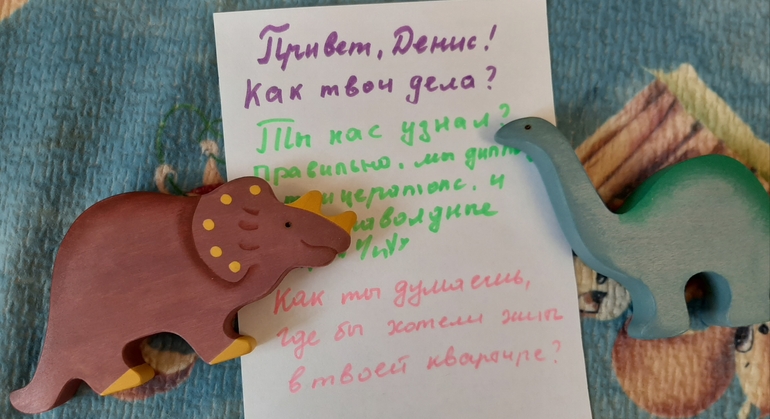 Привет, Денис!
Как твои дела?
Ты нас узнал?
Правильно, мы
и
Как ты думаешь,
где бы хотели жить
в твоей квартире?